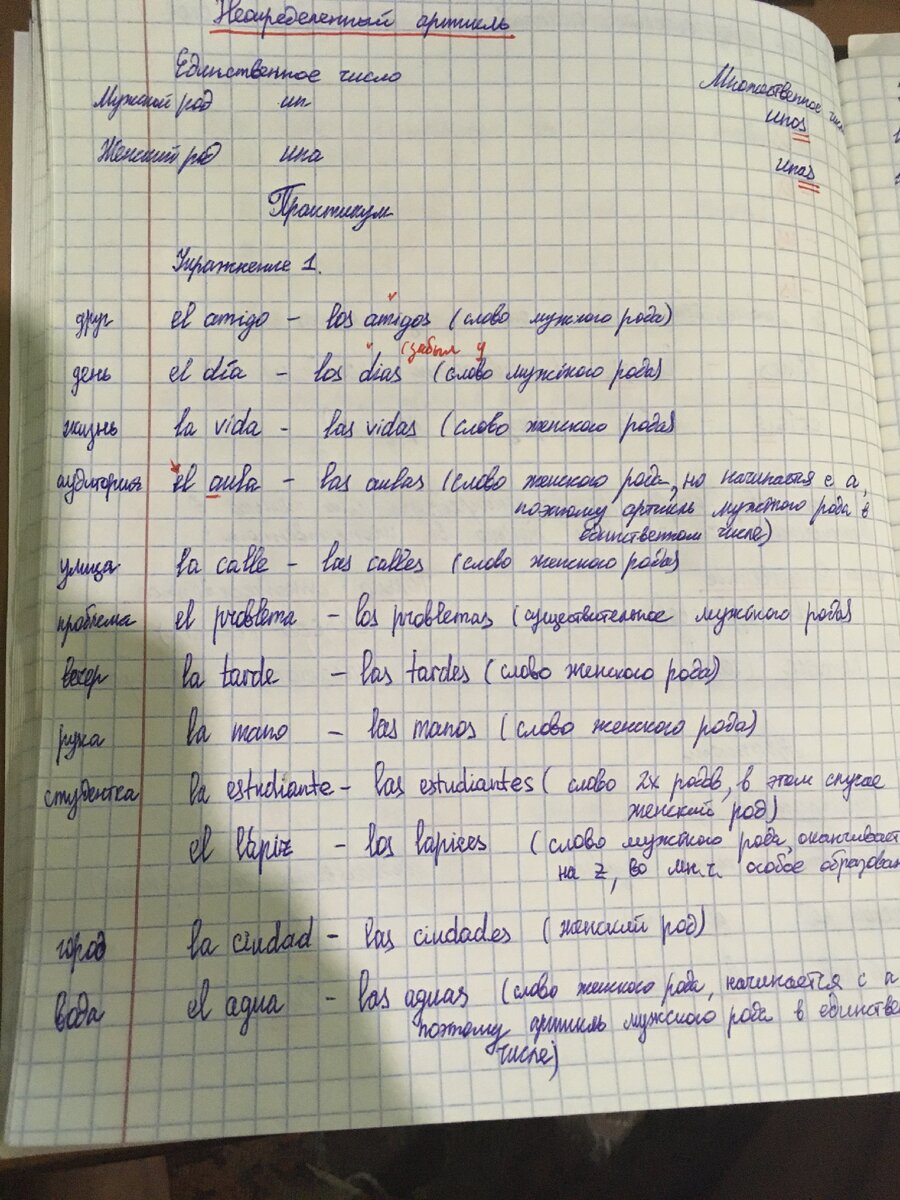 Неопределенный артикль
Единственное число
Множественное
Мужской род un
unos
Женский род una
unas
Практикум
Упражнение 1.
друг el amigo - los amigos (слово мужского рода)
(забыл
день el día - los dias (слово мужского рода)
жизнь la vida - las vidas (слово женского рода)
аудитория el aula - las aulas (слово женского рода, но начинается с а,
поэтому артикль мужского рода в
единственном числе)
улица la calle - las calles (слово женского рода)
проблема el problema - los problemas (существительное мужского рода)
вечер la tarde - las tardes (слово женского рода)
рука la mano - las manos (слово женского рода)
студентка la estudiante - las estudiantes (слово 2х родов, в этом случае
женский род)
el lápiz - los lápices (слово мужского рода, оканчивает
на z, во мн.ч. особое образован
город la ciudad - las ciudades (женский род)
вода el agua - las aguas (слово женского рода, начинается с а
поэтому артикль мужского рода в единстве
числе)